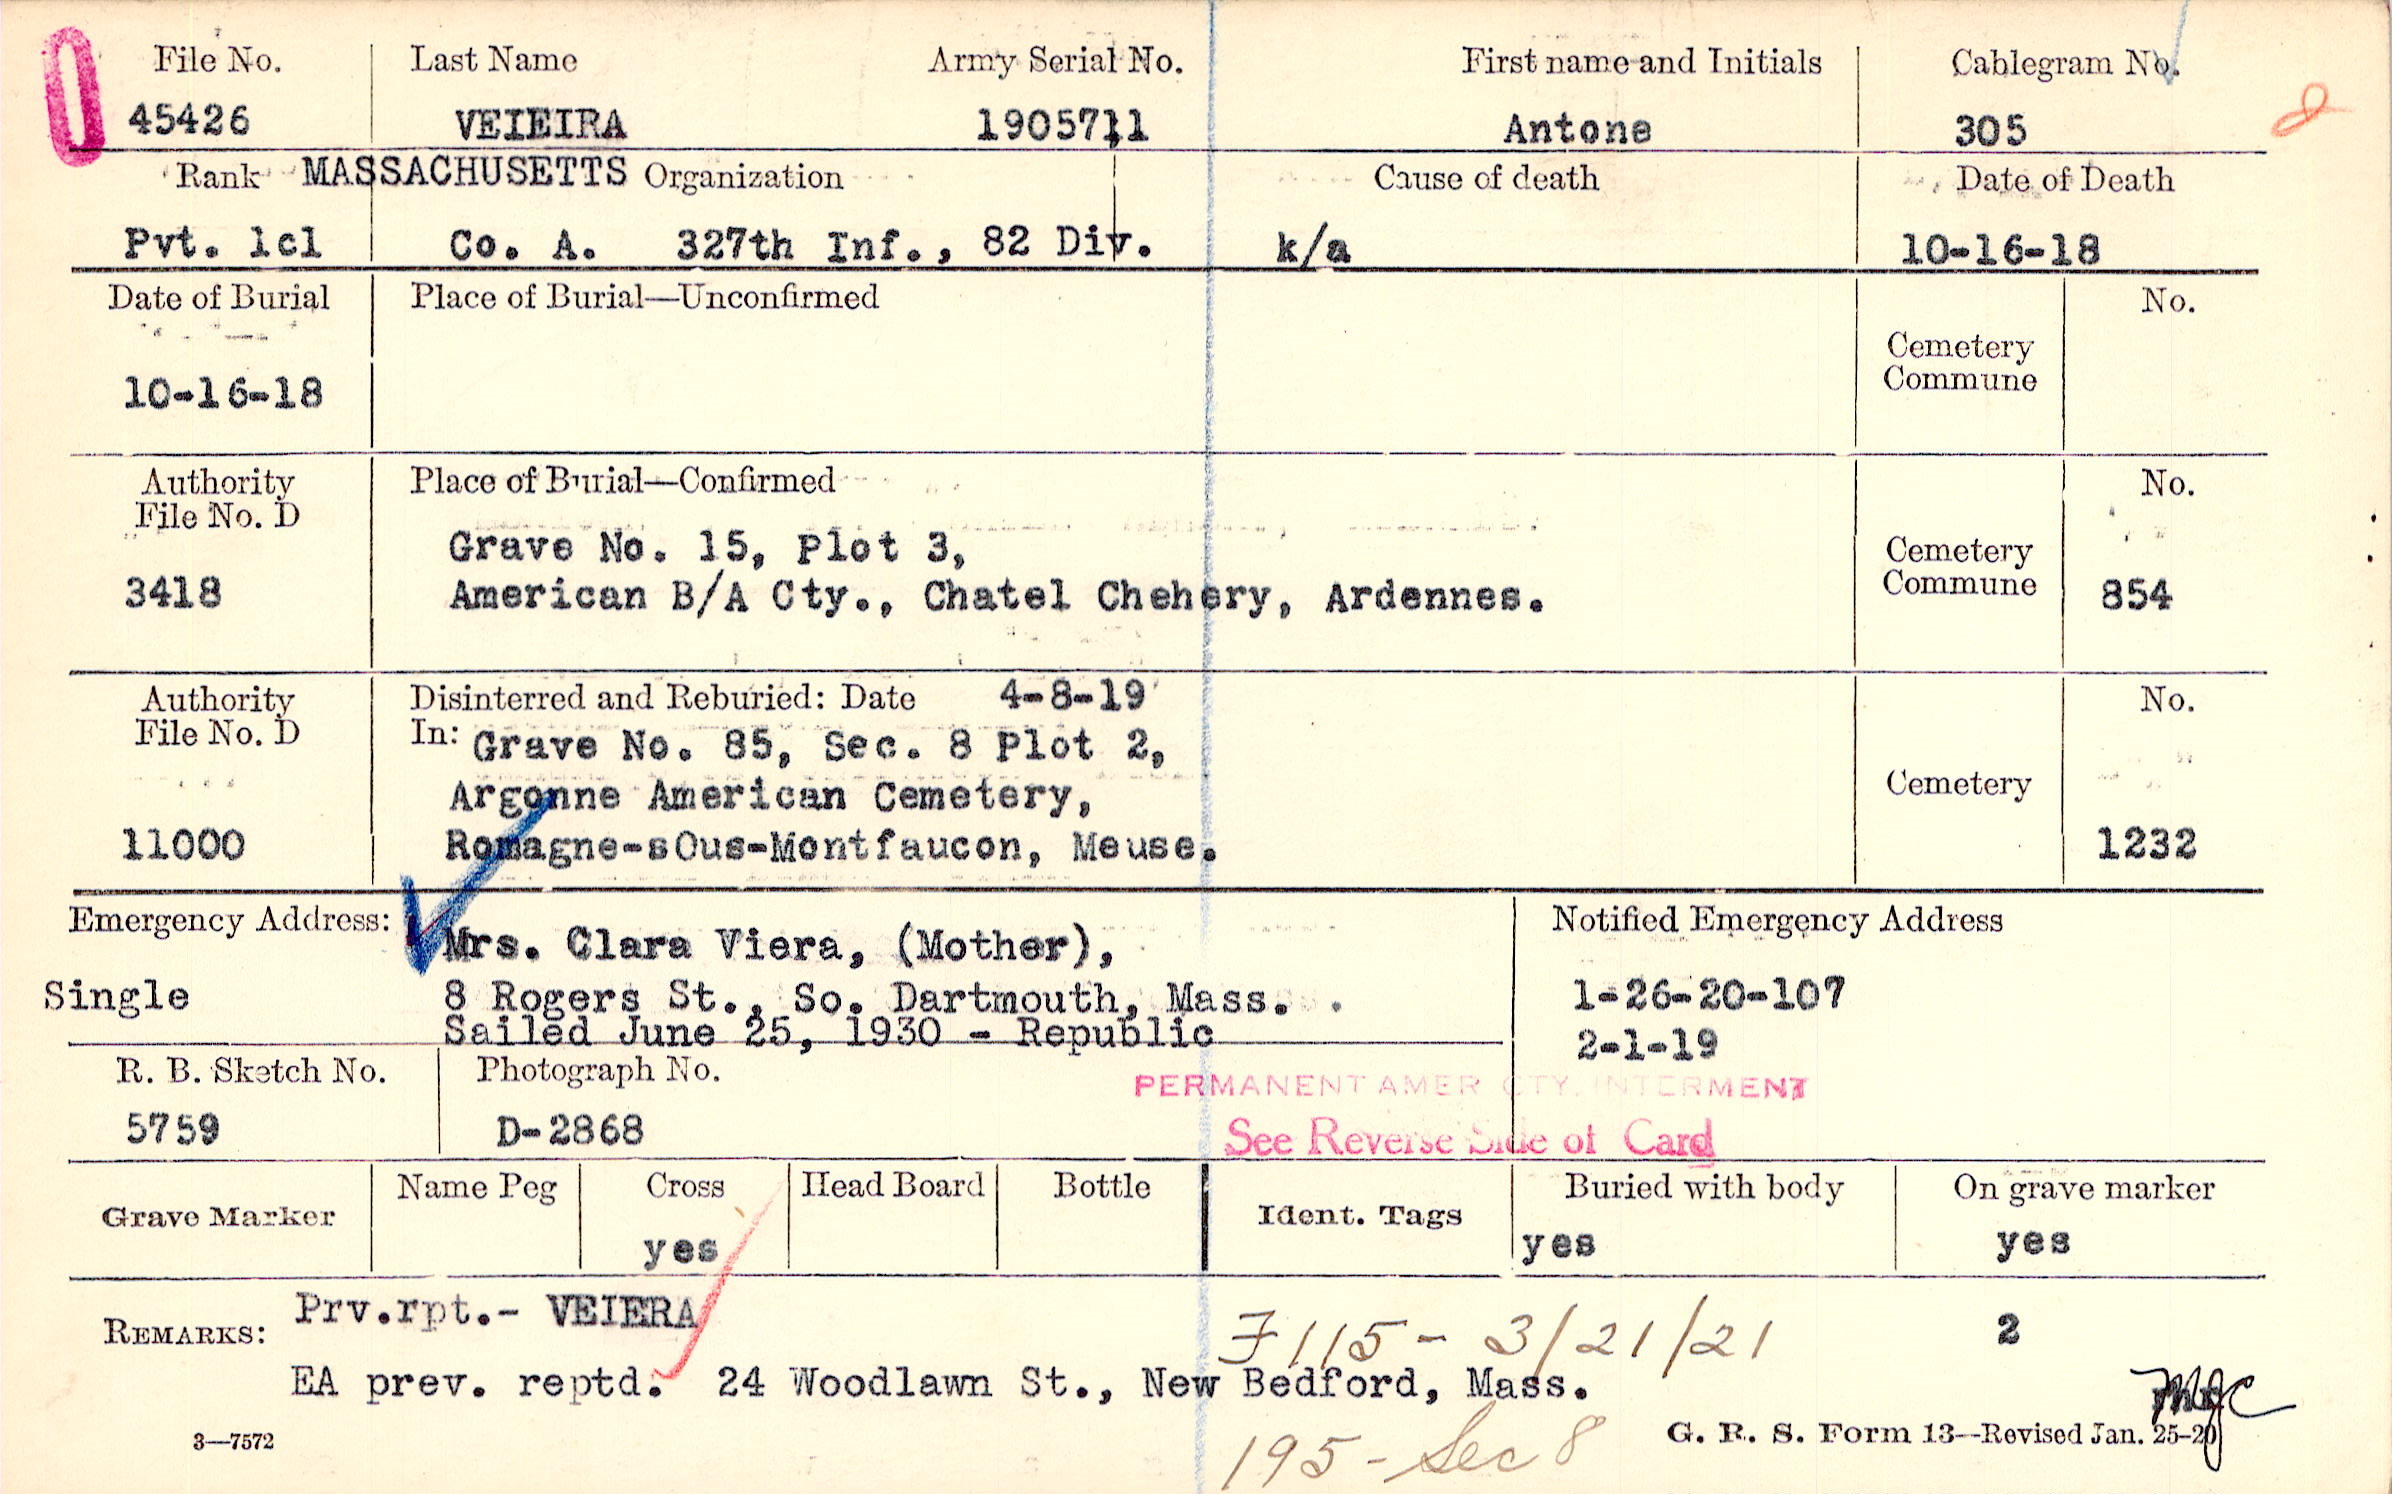 File No. Last Name Army Serial No. First name and Initials Cablegram No.
45426 VEIEIRA 1905711 Antone 305
Rank MASSACHUSETTS Organization Cause of death Date of Death
Pvt. 1cl Co. A. 327th Inf., 82 Div. k/a 10-16-18
Date of Burial Place of Burial—Unconfirmed No.
Cemetery
Commune
10-16-18
Authority Place of Burial—Confirmed No.
File No. D
Grave No. 15, Plot 3,
Cemetery
Commune
3418 American B/A Cty., Chatel Chehery, Ardennes. 854
Authority Disinterred and Reburied: Date 4-8-19 No.
File No. D In: Grave No. 85, Sec. 8 Plot 2,
Argonne American Cemetery, Cemetery
11000 Romagne-sOus-Montfaucon, Meuse. 1232
Emergency Address: Notified Emergency Address
Mrs. Clara Viera, (Mother),
Single 8 Rogers St., So. Dartmouth, Mass. 1-26-20-107
Sailed June 25, 1930 - Republic 2-1-19
R. B. Sketch No. Photograph No.
PERMANENT AMER CTY. INTERMENT
5759 D-2868 See Reverse Side of Card
Grave Marker Name Peg Cross Head Board Bottle Ident. Tags Buried with body On grave marker
yes yes yes
Prv.rpt.- VEIERA
REMARKS: 7115 - 3/21/21 2
EA prev. reptd. 24 Woodlawn St., New Bedford, Mass. MJC
3—7572 195 - Sec 8 G. R. S. Form 13—Revised Jan. 25-20